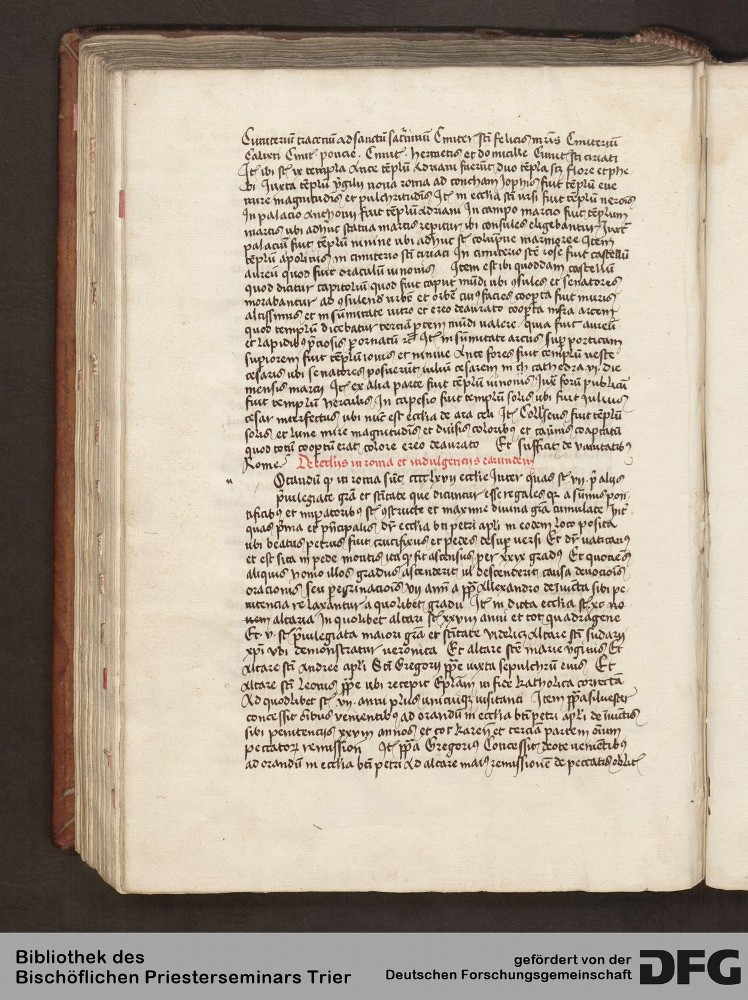 Cimiteriū traceniū ad sanctū saturninū Cimiter sti felicis mrīs Cimiteriū
Calixti Cimit poncie . Cimit hermetis et domicille Cimit sti ciriaci
It ibi st ix templa Ante tēplū Adriani fuerūt duo tēpla scz flore et phe
bi Iuxta tēplū ygilij noua roma ad concham Iophis fuit tēplū eue
mire magnitudīs et pulchritudīs It in ecclia sti ursi fuit tēplū neronis
In palacio Anthonij fuit tēplū Adriani In campo marcio fuit tēplum
martis ubi adhuc statua martis reperitur ibi consules eligebantur Iuxta
palaciū fuit tēplū minine ubi adhuc st colūpne marmoree Item
tēplū apolinis in cimiterio sti ciriaci In cimiterio ste rose fuit castellū
aureū quod fuit oraculū iunonis Item est ibi quoddam castellū
quod dicitur capitoliū quod fuit caput mūdi ubi ɔsules et senatores
morabantur ad ɔsulend urbē et orbē cuiꝰ facies coopta fuit muris
altissimis et in sūmitate vitro et ereo deaurato coopta infra arcem
quod templū dicebatur terciā ptem mūdi valere quia fuit aureū
et lapidibꝰ p̄ciosis p ornatū rc It in sūmitate arcius sup porticum
supiorem fuit tēplū iouis et minine Ante fores fuit templū veste
cesaris ubi senatores posuerūt iuliū cesarem in cathedra vi die
mensis marcij It ex alia parte fuit tēplū iunonis Iux forū publicū
fuit templū herculis In capesio fuit templū solis ubi fuit Iulius
cesar interfectus ubi nūc est ecclia de ara celi It Colliseus fuit tēplū
solis et lune mire magnitudīs et diuisis coloribꝰ et caminis coaptatū
quod totū cooptū erat colore ereo deaurato Et sufficit de vanitatibꝰ
Rome De eccliis in roma et indulgencijs earundem
Notandū ꝙ in roma sūt cccclxvij ecclie Inter quas st vij p̄ alijs
p̄uilegiate gr̄a et sc̄itate que dicuntur esse regales qr a sūmis pon
tificibꝰ et imperatoribꝰ st ɔstructe et maxime diuina gr̄a cumulate Int
quas prima et prīcipalis dr ecclia bti petri apli in eodem loco posita
ubi beatus petrus fuit crucifixus et pedes desup versi Et dr vaticanꝰ
et est sita in pede montis ita ꝙ fit ascensus per xxix gradꝰ Et quociens
aliquis homo illos gradus ascenderit ul descenderit causa deuociois
oracionis seu peregrinacionis vij anni a pp Allexandro de iniuncta sibi pe
nitencia relaxantur a quolibet gradu It in dicta ecclia st xc no
uem altaria In quolibet altari st xxviij anni et tot quadragene
Et v st p̄uilegiata maiori gr̄a et sc̄itate videlicz Altare sti sudarij
xpi ubi demonstratur veronica Et altare ste marie v̄ginis Et
Altare sti Andree apli Sti Gregorij ppe iuxta sepulchrū eius Et
Altare sti Leonis ppe ubi recepit Eplam in fide katholica correcta
Ad quodlibet st vij anni plus unicuiqz visitanti Item ppa siluester
concessit oībus venientibꝰ ad orandū in ecclia bti petri apli de iniūctis
sibi penitencijs xxviij annos et tot karen et terciā partem oīum
peccatorz remission It ppa Gregorius Concessit deuote venientibꝰ
ad orandū in ecclia bti petri Ad altare maiꝰ remissionē de peccatis oblit
Bibliothek des
Bischöflichen Priesterseminars Trier
gefördert von der
Deutschen Forschungsgemeinschaft
DFG